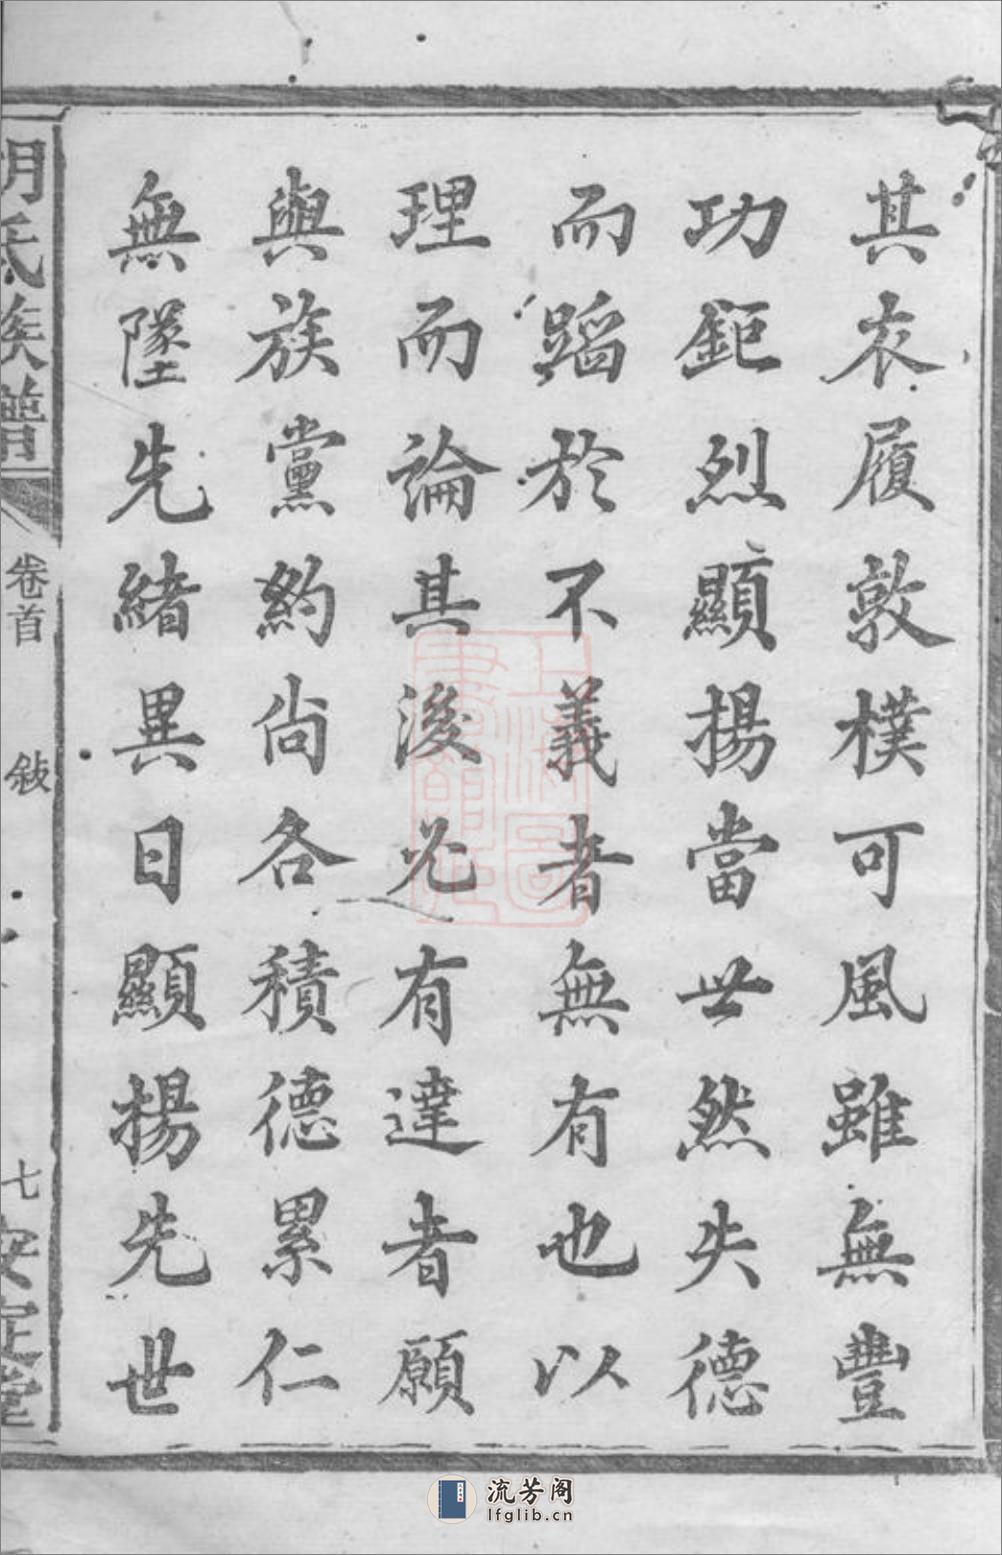 其衣履敦樸可風雖無豐
功鉅烈顯揚當世然失德
而蹈於不義者無有也以
理而論其後必有達者願
與族黨約尚各積德累仁
無墜先緒異日顯揚先世
胡氏族譜
卷首
敍
七
安定堂
上海圖書館藏
流芳阁
lfglib.cn